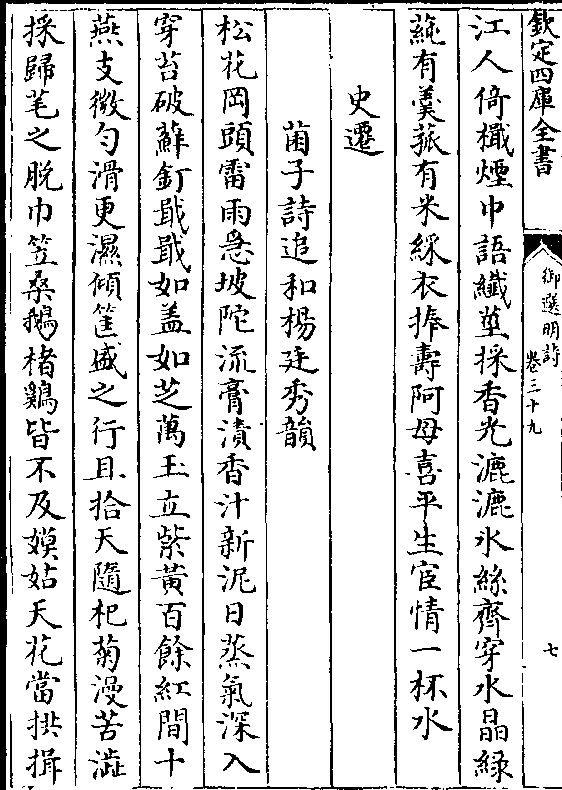 欽定四庫全書
御選明詩
卷三十九
七
江人倚檻煙中語纖莖採香光漉漉氷絲齊穿水晶綠
蒓有羮菰有米綵衣捧壽阿母喜平生宦情一杯水
史遷
菌子詩追和楊廷秀韻
松花岡頭雷雨急坡陀流膏漬香汁新泥日蒸氣深入
穿苔破蘚釘戢戢如盖如芝萬玉立紫黃百餘紅間十
燕支微勻滑更濕傾筐盛之行且拾天隨杞菊漫苦澁
採歸芼之脫巾笠桑鵝楮鷄皆不及嫫姑天花當拱揖